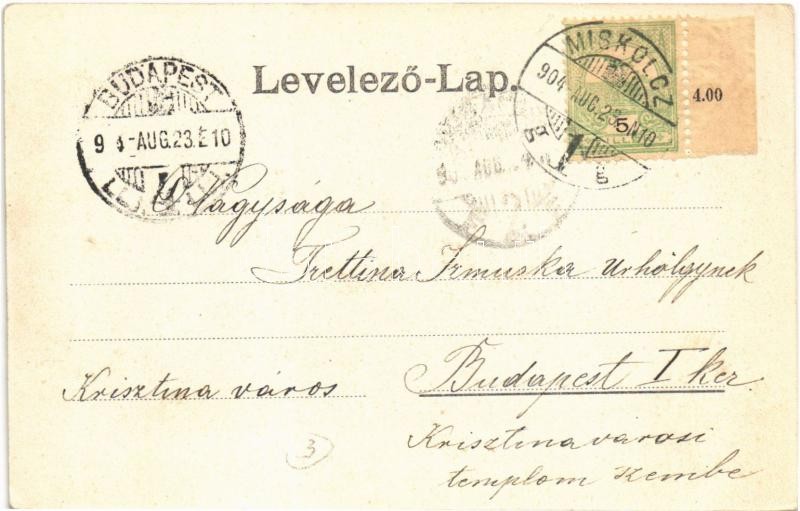 Levelező-Lap.
BUDAPEST
AUG.23.É10
MISKOLCZ
904 AUG.23.N10
4.00
5
AUG.
Nagysága
Trettina Irmuska Urhölgynek
Krisztina város
Budapest I ker.
Krisztina városi
templom szembe
3